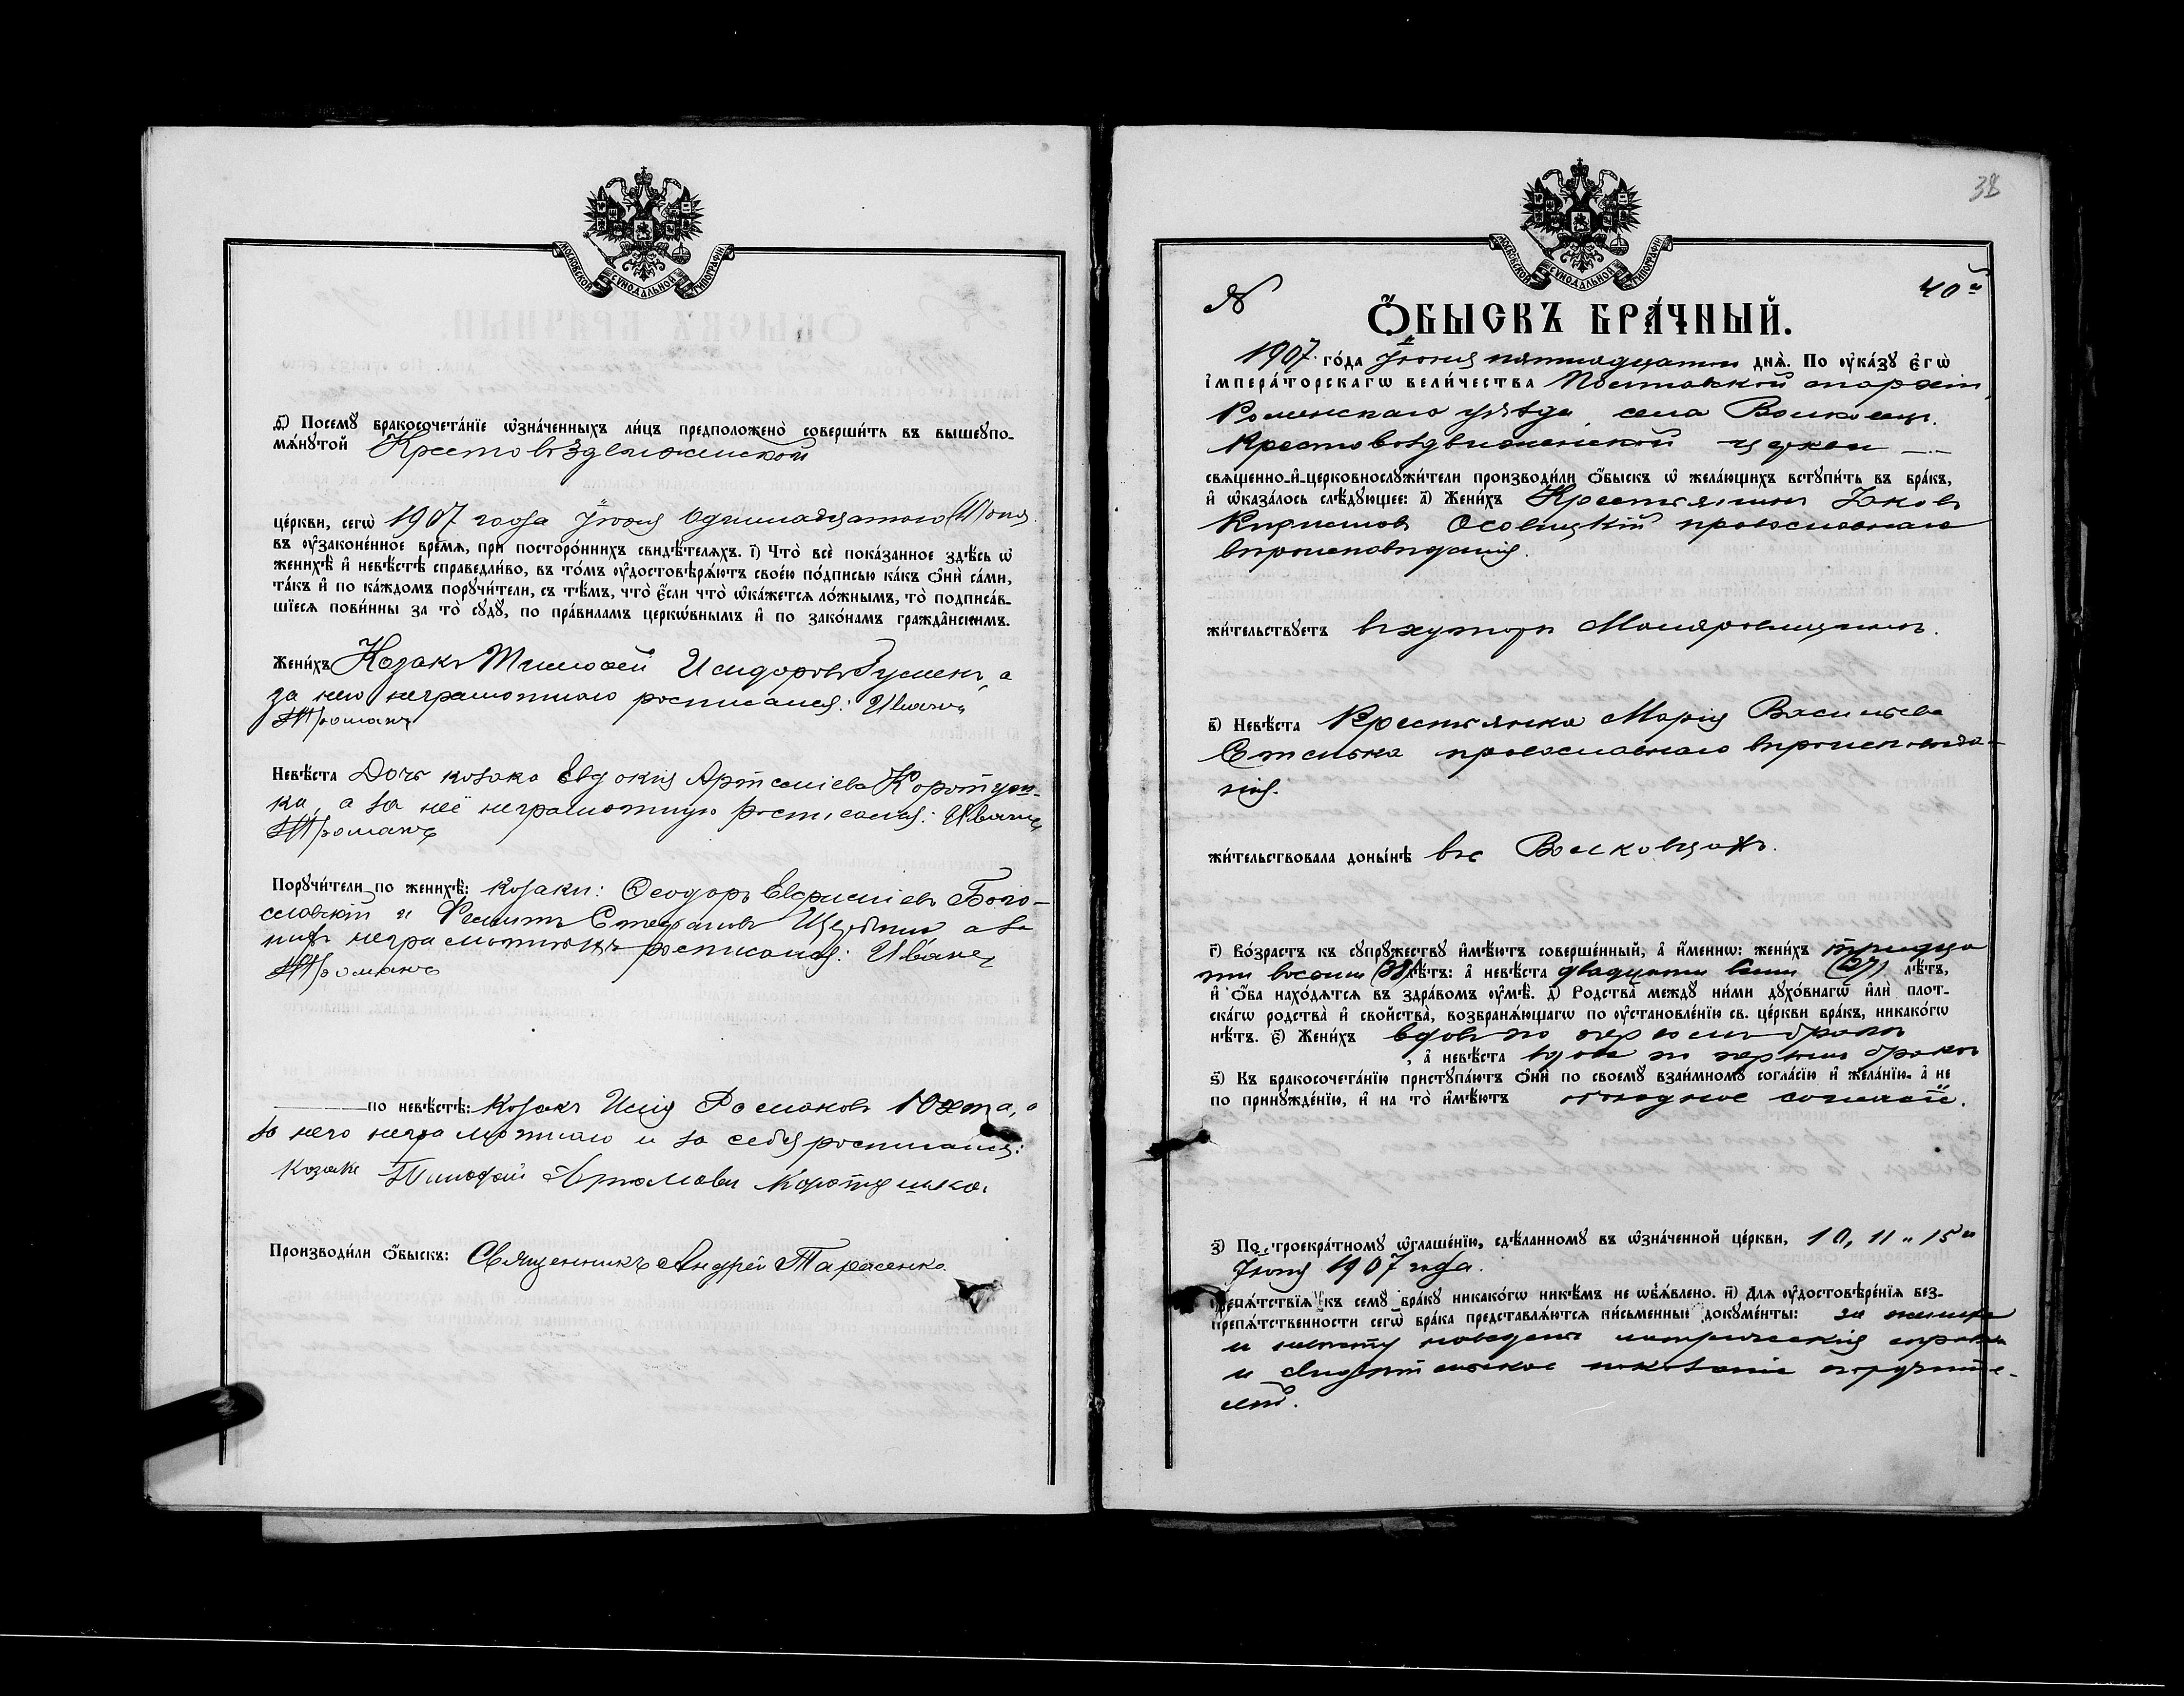 МОСКОВСКОЙ СУНОДАЛЬНОЙ ТИПОГРАФІИ
д҃) Посемꙋ бракосочета́нїе ѡ҆зна́ченныхъ ли́цъ предположено̀ соверши́ть въ вышеꙋпо-
мѧ́нꙋтой Крестовоздвиженской
це́ркви, сегѡ̀ 1907 года Іюня Одиннадцатого (11) дня
въ ᲂу҆законе́нное вре́мѧ, при посторо́ннихъ свидѣ́телѧхъ. і҃) Что̀ всѐ пока́занное здѣ́сь ѡ҆
женихѣ̀ и҆ невѣ́стѣ справедли́во, въ то́мъ ᲂу҆достовѣрѧ́ютъ свое́ю по́дписью ка́къ ѻ҆нѝ са́ми,
та́къ и҆ по ка́ждомъ порꙋчи́тели, съ тѣ́мъ, что̀ є҆́сли что̀ ѡ҆ка́жетсѧ ло́жнымъ, то̀ подписа́в-
шїесѧ пови́нны за то̀ сꙋдꙋ̀, по пра́виламъ церкѡ́внымъ и҆ по зако́намъ гражда́нскимъ.
Жени́хъ Козакъ Тимофей Исидоровъ Гуменъ, а
за него неграмотного росписался: Иванъ
Невѣ́ста Дочь козака Евдокія Артеміева Коротун-
ка, а за неё неграмотную росписался: Иванъ
Порꙋчи́тели по женихѣ̀: Козаки: Ѳеодоръ Евфиміевъ Бого-
словскій и Филипъ Стефановъ а за
нихъ неграмотныхъ росписался: Иванъ
по невѣ́стѣ: Козакъ Илія Романовъ Юхта, а
за него неграмотного и за себя росписался:
Козакъ Тимофей Артемовъ
Производи́ли ѻ҆́быскъ: Священникъ Андрей Тарасенко
38
МОСКОВСКОЙ СУНОДАЛЬНОЙ ТИПОГРАФІИ
№ 40й
Ѻ҆́БЫСКЪ БРА́ЧНЫЙ.
1907 го́да Іюня пятнадцатого днѧ̀. По ᲂу҆ка́зꙋ є҆гѡ̀
і҆мпера́торскагѡ вели́чества Полтавской епархіи,
Роменскаго уѣзда села Волковецъ
Крестовоздвиженской церкви
свѧще́нно-и҆-церковнослꙋжи́тели производи́ли ѻ҆́быскъ ѡ҆ жела́ющихъ встꙋпи́ть въ бра́къ,
и҆ ѡ҆каза́лось слѣ́дꙋющее: а҃) Жени́хъ Крестьянинъ Яковъ
Кирилловъ Осовицкій православнаго
вѣроисповѣданія.
жи́тельствꙋетъ въ хуторѣ
в҃) Невѣ́ста Крестьянка Марія Васильева
православнаго вѣроисповѣда-
нія.
жи́тельствовала доны́нѣ въ с Волковцахъ.
г҃) Во́зрастъ къ сꙋпрꙋ́жествꙋ и҆мѣ́ютъ соверше́нный, а҆ и҆́менно: жени́хъ тридца
ти восьми (38) лѣ́тъ: а҆ невѣ́ста двадцати семи (27) лѣ́тъ,
и҆ ѻ҆́ба нахо́дѧтсѧ въ здра́вомъ ᲂу҆мѣ̀. д҃) Родства̀ междꙋ ни́ми дꙋхо́внагѡ и҆лѝ плот-
ска́гѡ родства̀ и҆ свойства̀, возбранѧ́ющагѡ по ᲂу҆становле́нїю св. це́ркви бра́къ, никако́гѡ
нѣ́тъ. є҃) Жени́хъ вдовъ по первомъ бракѣ
, а҆ невѣ́ста вдова по первомъ бракѣ
ѕ҃) Къ бракосочета́нїю пристꙋпа́ютъ ѻ҆нѝ по своемꙋ̀ взаи́мномꙋ согла́сїю и҆ жела́нїю, а҆ не
по принꙋжде́нїю, и҆ на то̀ и҆мѣ́ютъ обоюдное согласіе.
з҃) По троекра́тномꙋ ѡ҆глаше́нїю, сдѣ́ланномꙋ въ ѡ҆зна́ченной це́ркви, 10, 11 и 15го
Іюня 1907 года.
препѧ́тствїѧ къ семꙋ̀ бра́кꙋ никако́гѡ никѣ́мъ не ѡ҆б̾ѧ́влено. и҃) Длѧ ᲂу҆достовѣре́нїѧ без-
препѧ́тственности сегѡ̀ бра́ка представлѧ́ютсѧ пи́сьменные докꙋме́нты: за жениха
и невѣсту наведены метрическія справки
и свидѣтельское показаніе поручите-
лей.